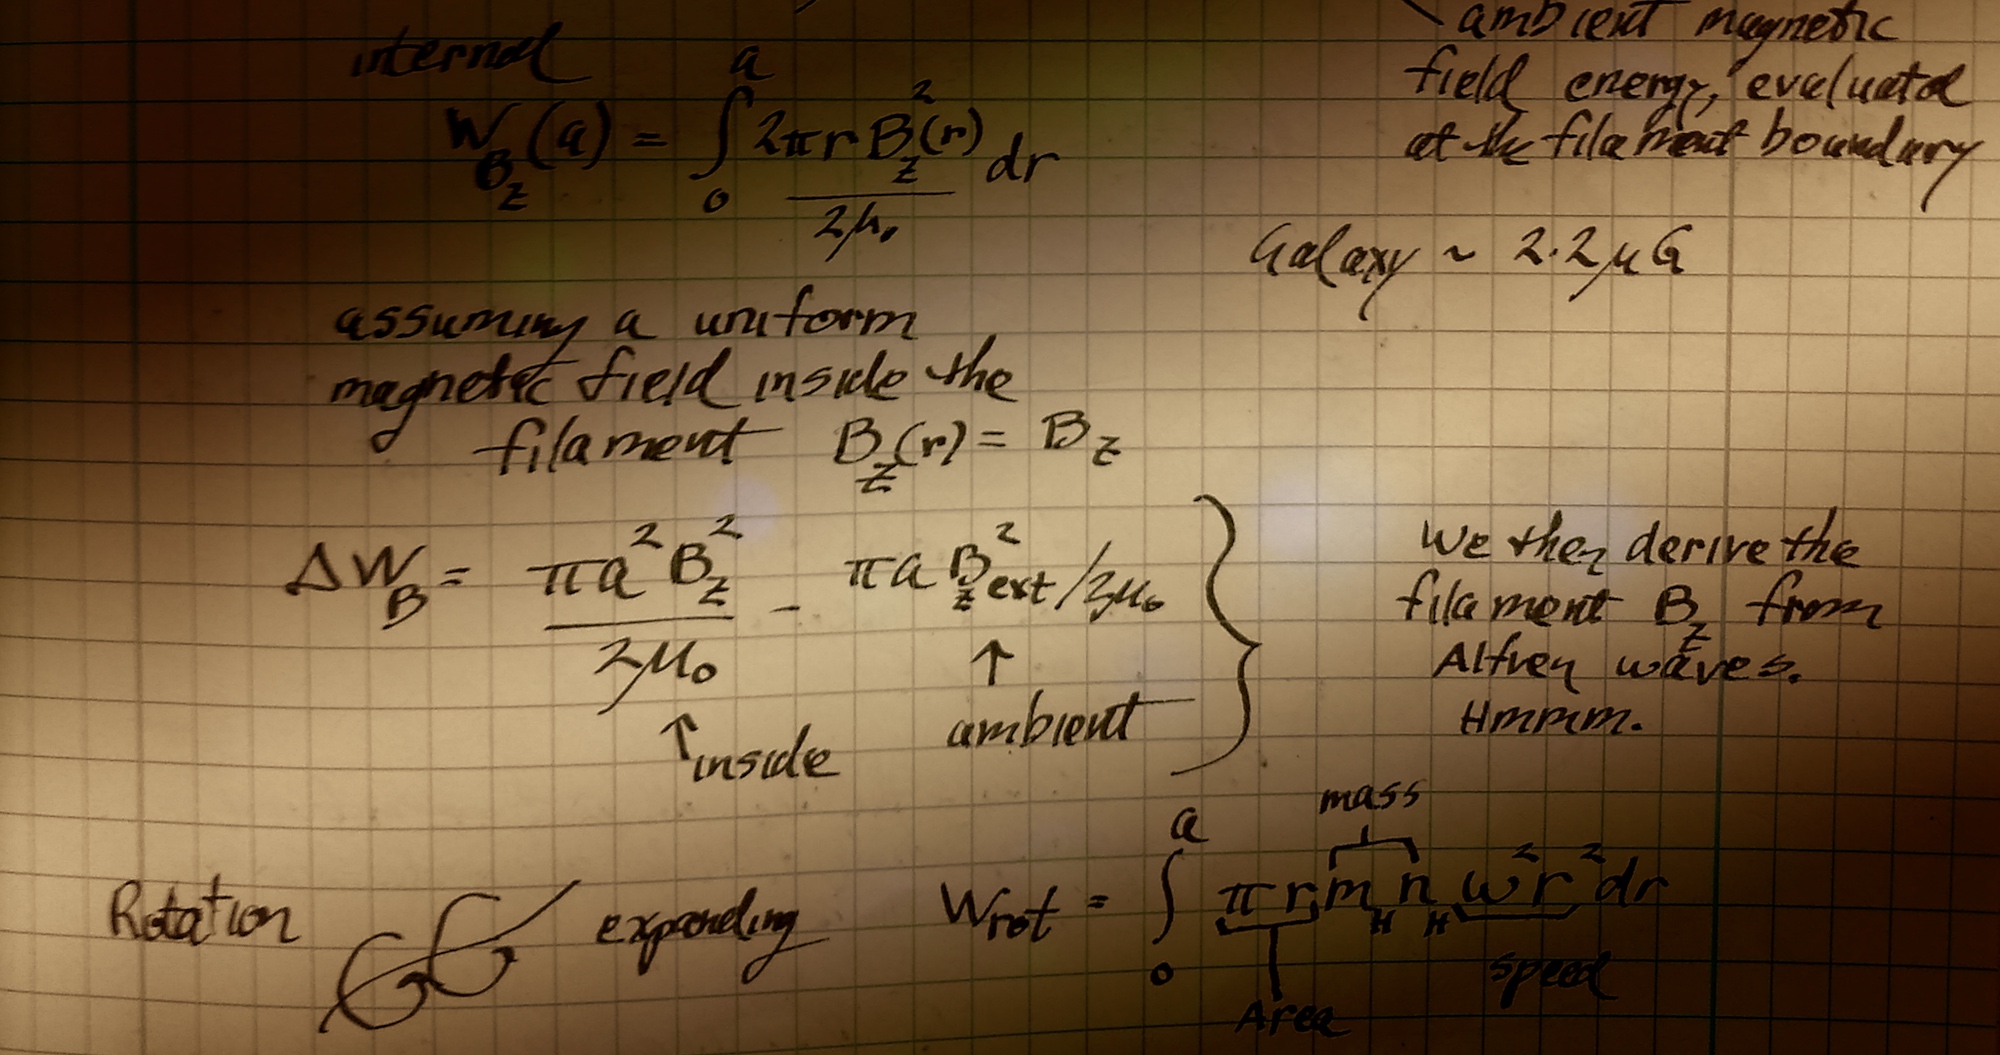 internal
W_{B_z}(a) = ∫_0^a 2πr B_z^2(r) / 2μ₀ dr
ambient magnetic
field energy, evaluated
at the filament boundary
Galaxy ~ 2.2 μG
assuming a uniform
magnetic field inside the
filament B_z(r) = B_z
ΔW_B = πa²B_z² / 2μ₀ - πa B_z²ext / 2μ₀
↑ inside
↑
ambient
We then derive the
filament B_z from
Alfven waves.
Hmmm.
Rotation
expanding
mass
W_rot = ∫_0^a πr m_H n_H ω²r² dr
Area
speed